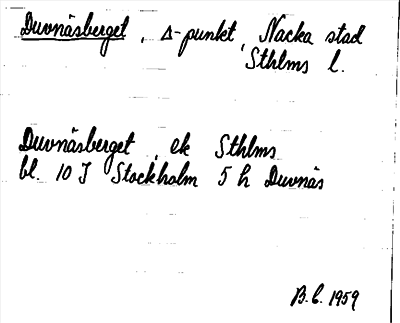 Duvnäsberget, Δ-punkt, Nacka stad
Sthlms l.
Duvnäsberget, ek Sthlms
bl. 10 I Stockholm 5 h Duvnäs
B.C. 1959